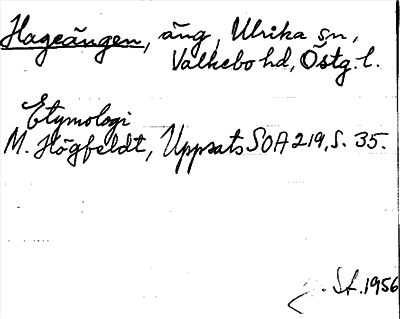 Hageängen, äng, Ulrika sn,
Valkebo hd, Östg. l.
Etymologi
M. Högfeldt, Uppsats SOA 219, S. 35.
St. 1956